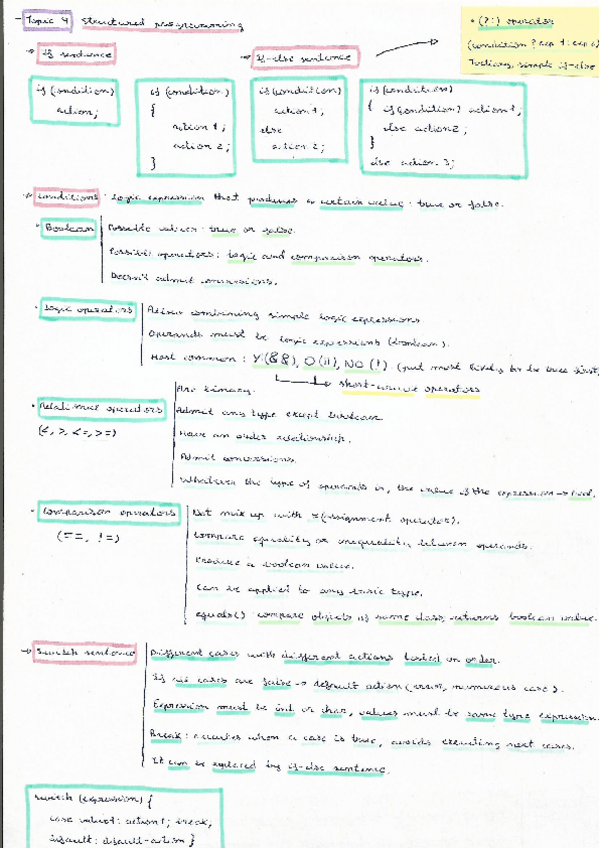 - Topic 4 Structured programming
• (?:) operator
(condition ? exp 1 : exp 2
Ternary, simple if-else
→ if sentence
→ If-else sentence
if (condition)
action;
if (condition)
{
action 1;
action 2;
}
if (condition)
action 1;
else
action 2;
if (condition)
{ if (condition) action 1;
else action 2;
}
else action 3;
→ Conditions · Logic expression that produces a certain value : true or false.
• Boolean
Possible values : true or false.
Possible operators : logic and comparison operators.
Doesn't admit conversions.
• Logic operators
Allow combining simple logic expressions.
Operands must be logic expressions (boolean).
Most common : Y (&&), O (||), NO (!) (put most likely to be true first)
→ short-circuit operators
• Relational operators
(<, >, <=, >=)
Are binary.
Admit any type except boolean
Have an order relationship.
Admit conversions.
Whatever the type of operands is, the value of the expression → bool.
• Comparison operators
(==, !=)
Not mix up with = (assignment operator).
Compare equality or inequality between operands.
Produce a boolean value.
Can be applied to any basic type.
equals() compare objects of same class, returns boolean value.
→ Switch sentence
Different cases with different actions listed in order.
If all cases are false → default action (error, numerous case).
Expression must be int or char, values must be same type expression.
Break : executes when a case is true, avoids executing next cases.
It can be replaced by if-else sentence.
switch (expression) {
case value1 : action1; break;
default : default-action }